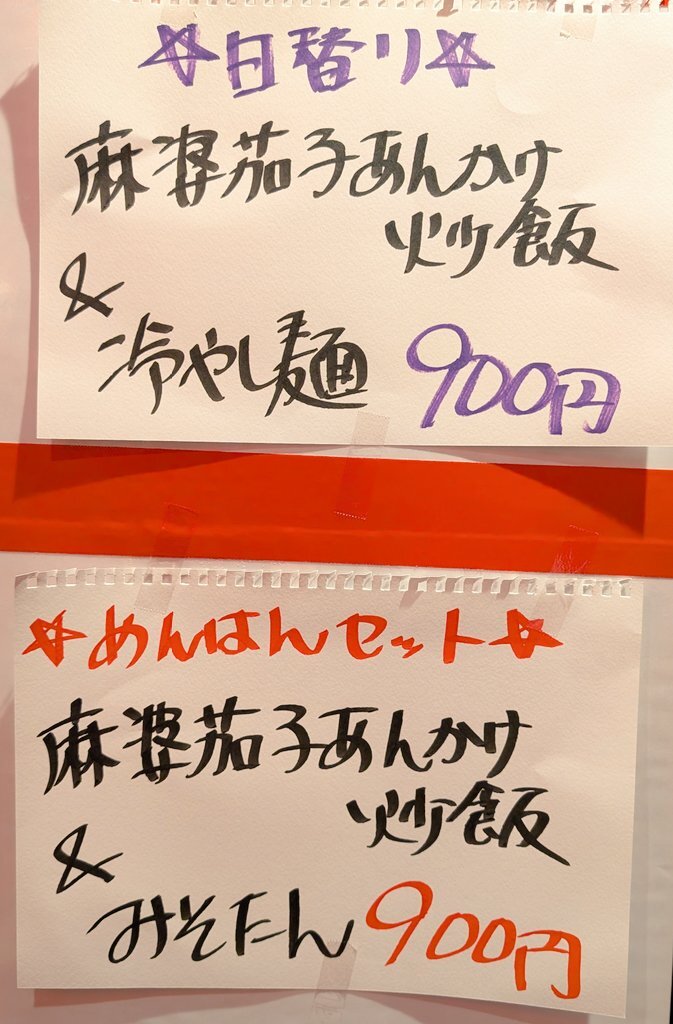 ☆日替り☆
麻婆茄子あんかけ
炒飯
&
冷やし麺 900円
☆めんはんセット☆
麻婆茄子あんかけ
炒飯
&
みそたん 900円